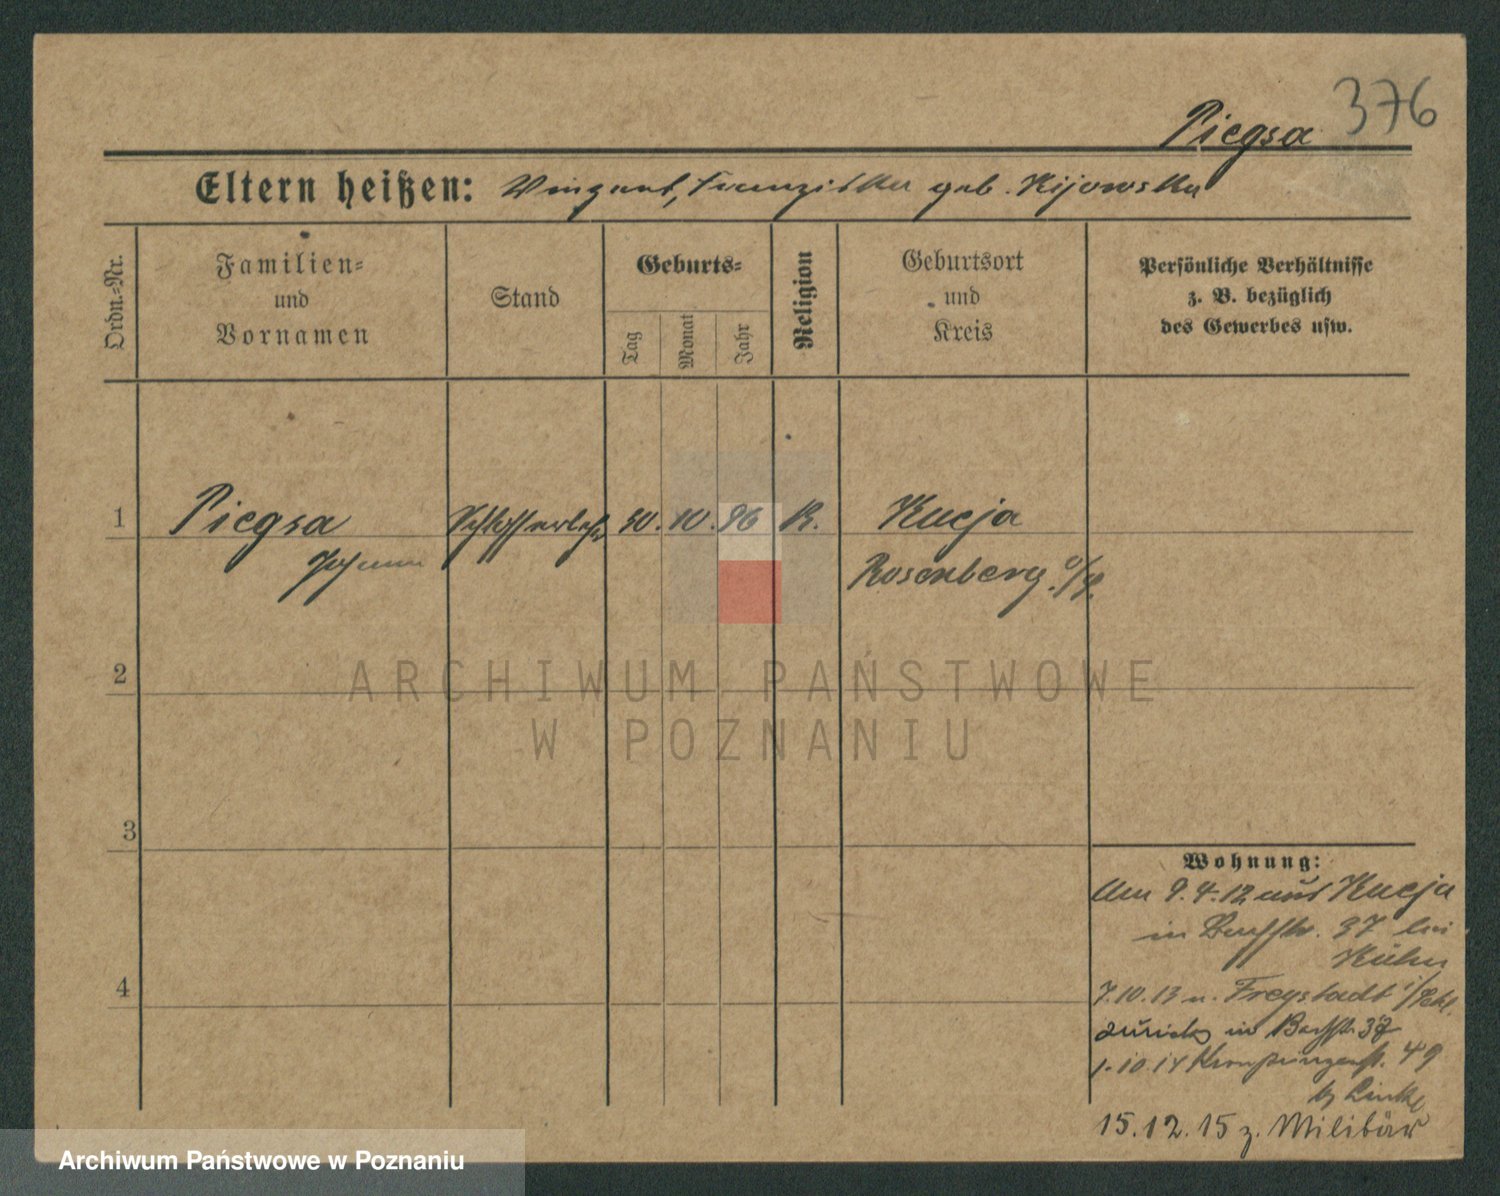 376
Piegsa
Eltern heißen: Vinzent, Franziska geb. Kijowska
Ordn.-Nr.
Familien-
und
Vornamen
Stand
Geburts-
Tag
Monat
Jahr
Religion
Geburtsort
und
Kreis
Persönliche Verhältnisse
z. B. bezüglich
des Gewerbes usw.
1 Piegsa Schlosserlehr. 30. 10. 96 K. Kucja
Johann Rosenberg O/S.
2
ARCHIWUM PAŃSTWOWE
W POZNANIU
3
Wohnung:
Am 9.4.12 aus Kucja
in Bachstr. 37 bei
Kühn
4
7.10.13 n. Freystadt i/Schl.
zurück in Bachstr. 37
1.10.14 Kronprinzenstr. 49
b/ Linke
15.12.15 z. Militär
Archiwum Państwowe w Poznaniu